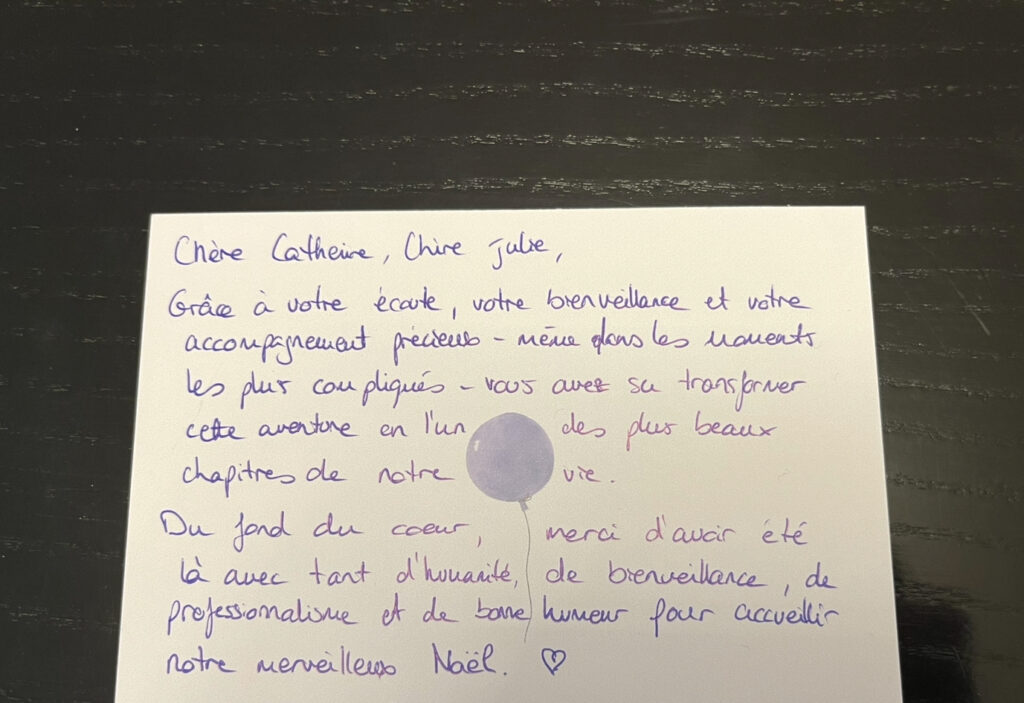 Chère Catherine, Chère Julie,
Grâce à votre écoute, votre bienveillance et votre
accompagnement précieux - même dans les moments
les plus compliqués - vous avez su transformer
cette aventure en l'un des plus beaux
chapitres de notre vie.
Du fond du coeur, merci d'avoir été
là avec tant d'humanité, de bienveillance, de
professionnalisme et de bonne humeur pour accueillir
notre merveilleux Naël. ♡